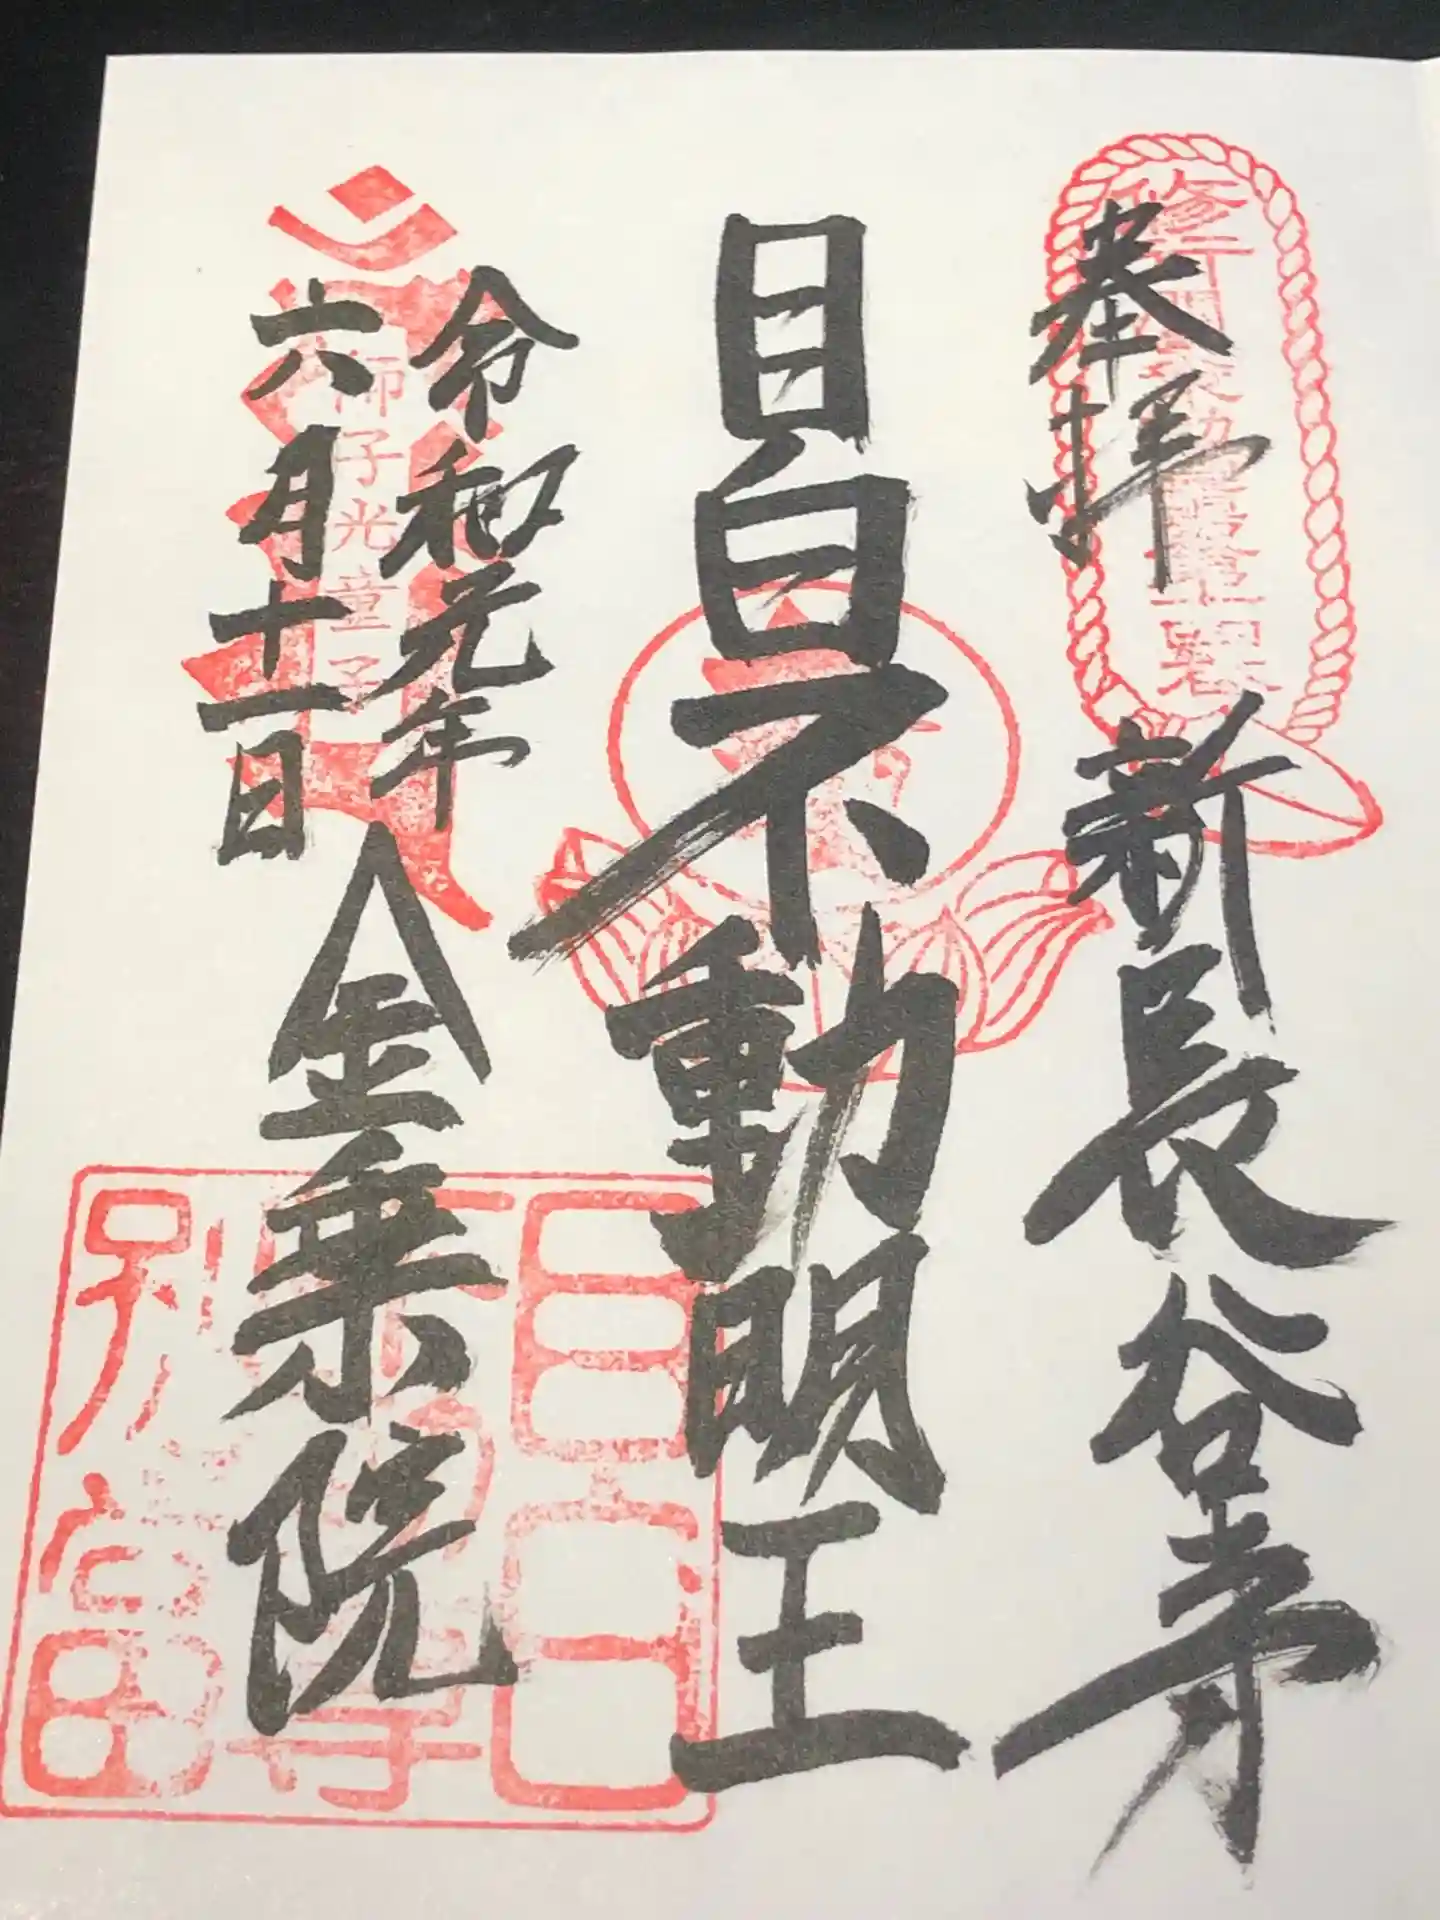 奉拝
新長谷寺
目白不動明王
令和元年
六月十一日
金乗院
子光童子